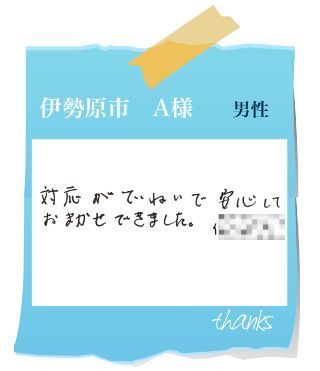 伊勢原市 A様 男性
対応がていねいで安心して
おまかせできました。
thanks